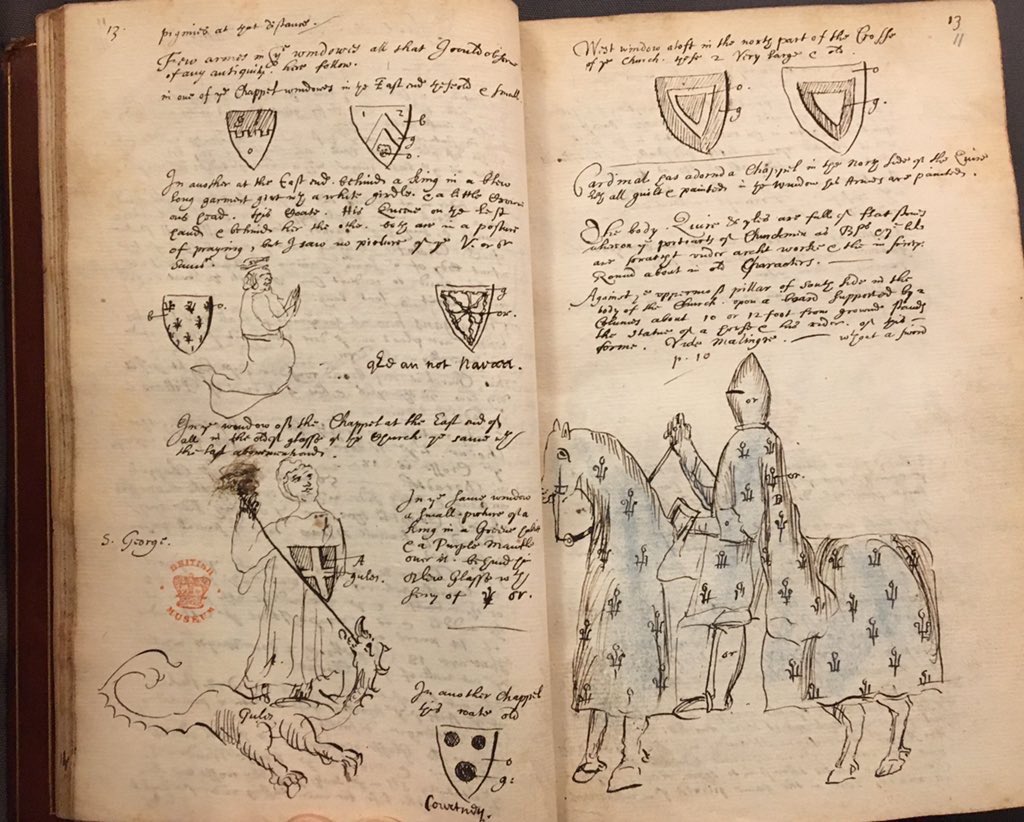 13.
pigmies at that distance.
Few armes in ye windowes all that I could observe
of any antiquity. here follow.
in one of ye Chappel windowes in ye East end
& small.
o
1 2
b
g
o.
In another at the East end. behind a King in a blew
long garment girt with a white girdle.
head. this Coate. His Queene on the left
hand & behind her the other. both are in a posture
of praying, but I saw no picture of ye V. or Sr
Saint.
b
o.
g
or.
an not Navarr.
In ye window of the Chappel at the East end of
all in the oldest glasse of ye Church ye same with
the last
S. George.
A
gules.
In ye same window
a small picture of a
King in a Greene
& a Purple Mantle
over it. behind
blew Glasse with
of or.
BRITISH MUSEUM
Gules.
In another Chappel
this coate old
o
g:
Courtney.
13
11
West window aloft in the north part of the Crosse
of ye Church. these 2 Very large & old.
o.
g.
o
g.
Cardinal has adornd a Chappel in the North side of the Quire
with all guilt & painted in the window his Armes are painted.
The body. Quire & yles are full of flat stones
whereon ye portraits of Churchmen as Bps &c
are under archt worke & the in
Round about in old Characters.
Against ye uppermost pillar of South side in the
body of the Church. upon a board supported by 2
Columnes about 10 or 12 foot from ground stands
the Statue of a horse & his rider. of this
forme. Vide Malingre. without a sword
p. 10
or
or.
B
or